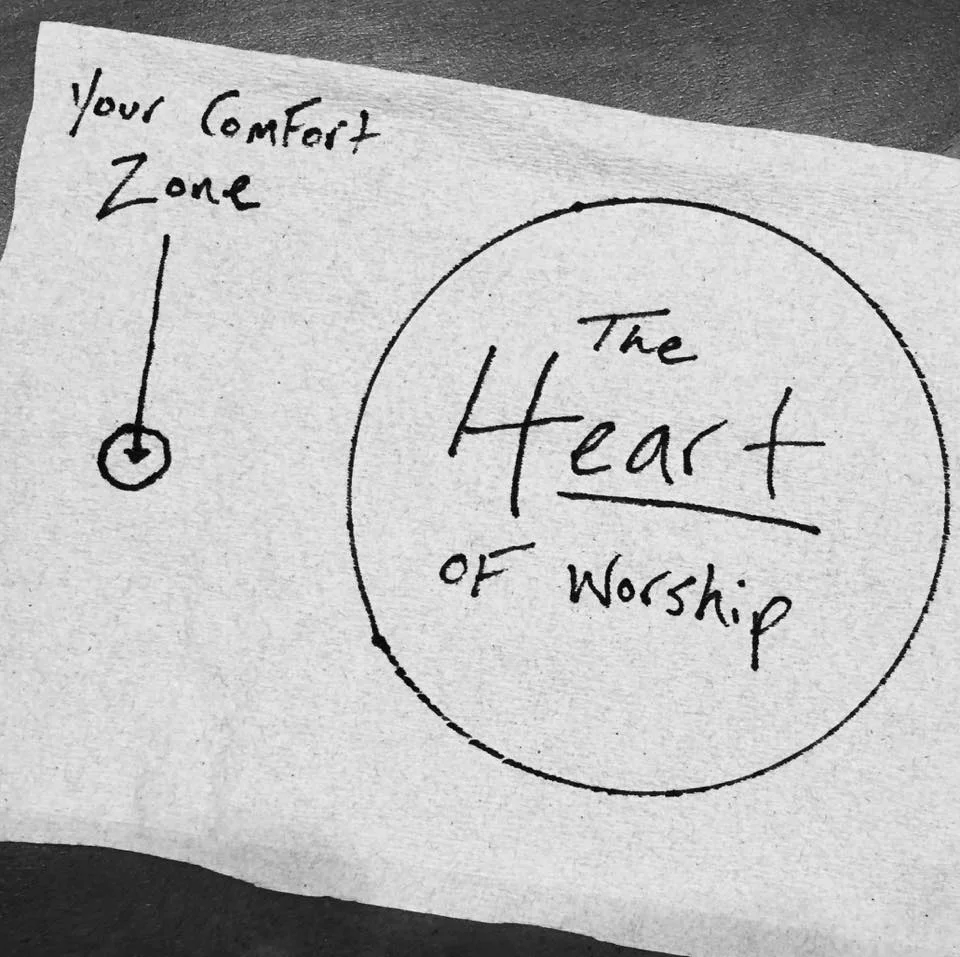 Your Comfort
Zone
The
Heart
of Worship